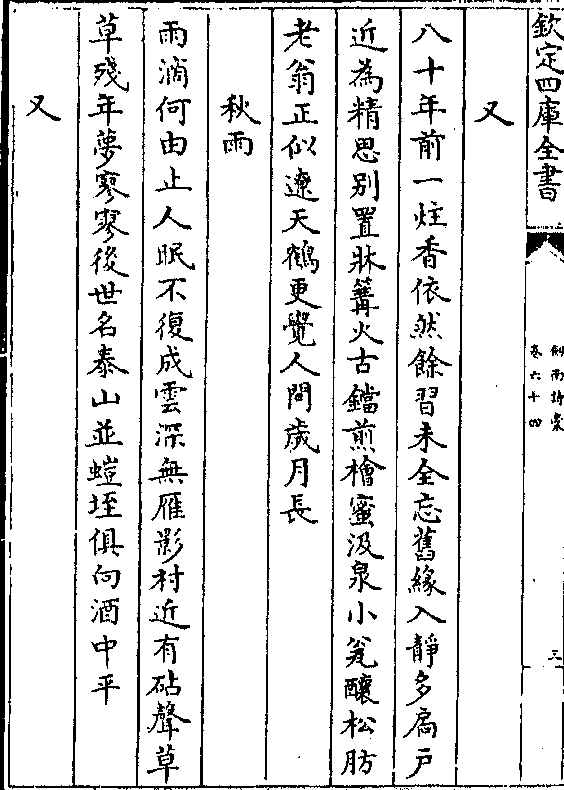 欽定四庫全書
劍南詩稾
卷六十四
三
又
八十年前一炷香依然餘習未全忘舊緣入靜多扄戸
近為精思别置牀篝火古鐺煎檜蜜汲泉小瓮釀松肪
老翁正似遼天鶴更覺人間歲月長
秋雨
雨滴何由止人眠不復成雲深無雁影村近有砧聲草
草殘年夢寥寥後世名泰山並螘垤俱向酒中平
又